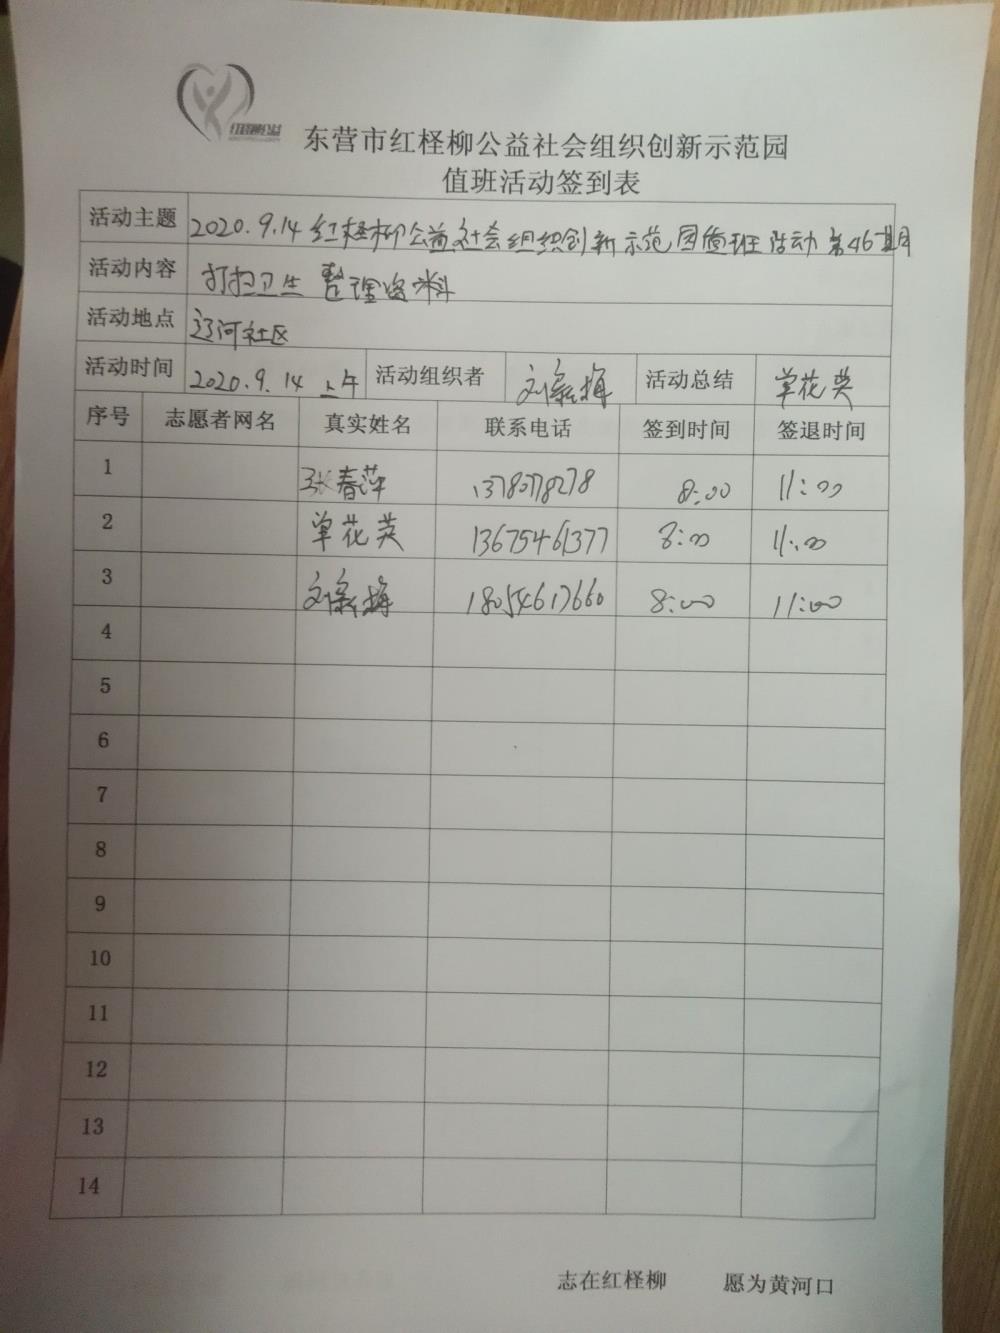 红柽柳公益
东营市红柽柳公益社会组织创新示范园
值班活动签到表
活动主题 2020.9.14 红柽柳公益社会组织创新示范园值班活动第46期
活动内容 打扫卫生 整理资料
活动地点 辽河社区
活动时间 2020.9.14 上午 活动组织者 刘 梅 活动总结 单花英
序号 志愿者网名 真实姓名 联系电话 签到时间 签退时间
1 张春萍 8:00 11:00
2 单花英 13675461377 8:00 11:00
3 刘 梅 18054617660 8:00 11:00
4
5
6
7
8
9
10
11
12
13
14
志在红柽柳 愿为黄河口